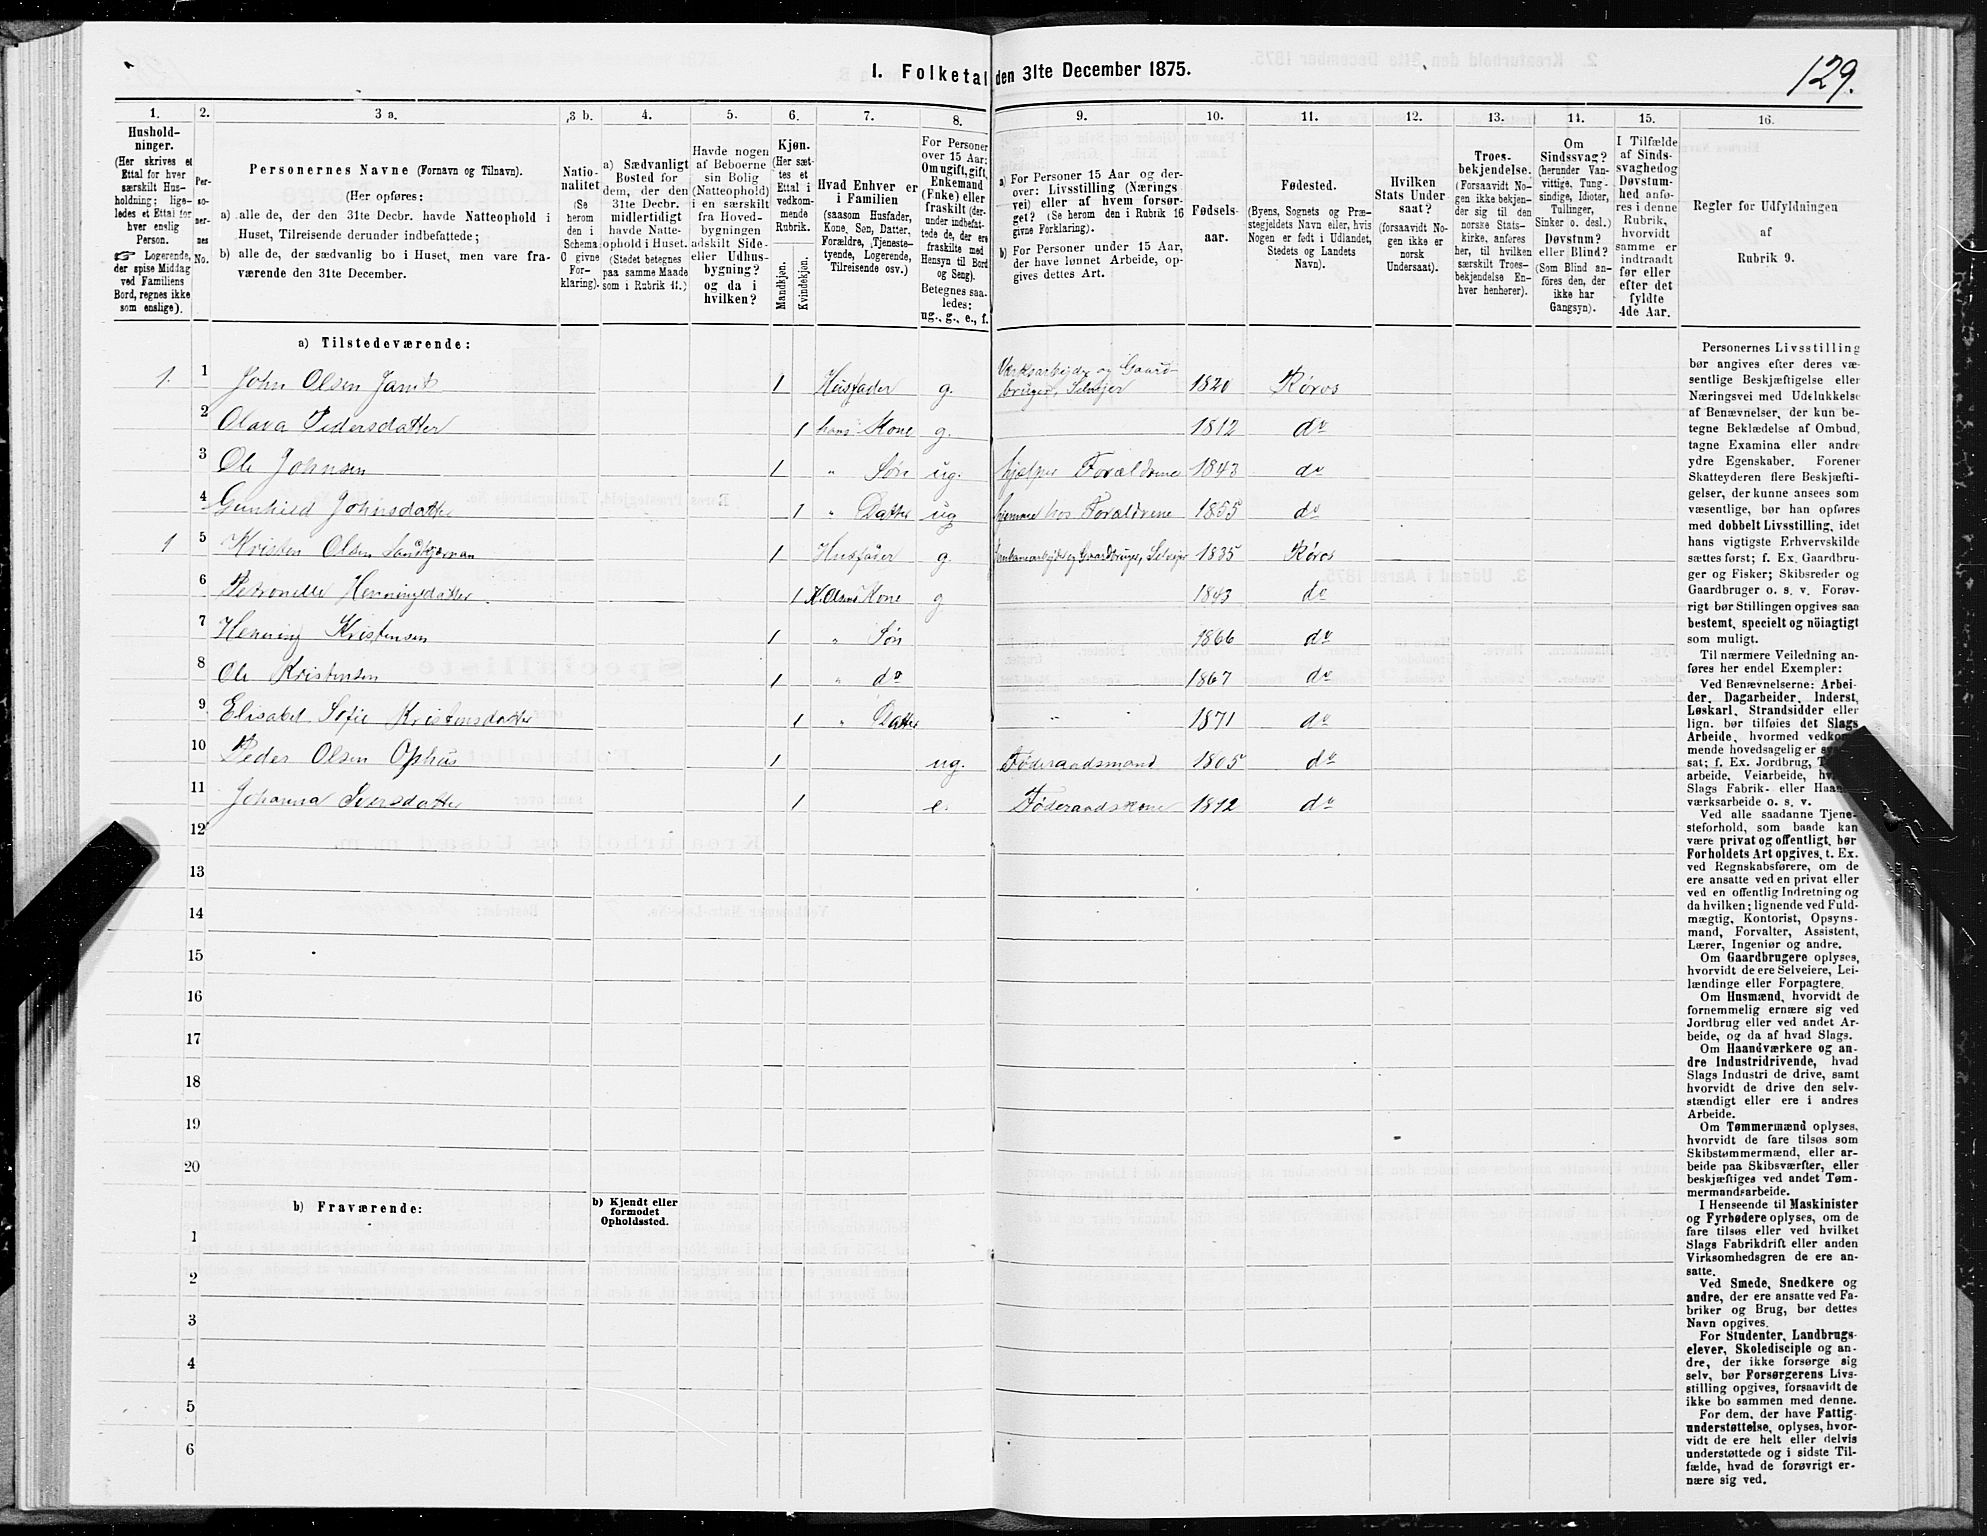 129.
I. Folketal den 31te December 1875.
1. 2. 3 a. 3 b. 4. 5. 6. 7. 8. 9. 10. 11. 12. 13. 14. 15. 16.
Hushold-
ninger.
(Her skrives et
Ettal for hver
særskilt Hus-
holdning; lige-
ledes et Ettal for
hver enslig
Person.
☞ Logerende,
der spise Middag
ved Familiens
Bord, regnes ikke
som enslige).
Per-
so-
ner-
nes
No.
Personernes Navne (Fornavn og Tilnavn).
(Her opføres:
a) alle de, der den 31te Decbr. havde Natteophold i
Huset, Tilreisende derunder indbefattede;
b) alle de, der sædvanlig bo i Huset, men vare fra-
værende den 31te December.
Natio-
nalitet
(Se
herom
den i
Schema
O givne
For-
klaring).
a) Sædvanligt
Bosted for
dem, der den
31te Decbr.
midlertidigt
havde Natte-
ophold i Huset.
(Stedet betegnes
paa samme Maade
som i Rubrik 11.)
Havde nogen
af Beboerne
sin Bolig
(Natteophold)
i en særskilt
fra Hoved-
bygningen
adskilt Side-
eller Udhus-
bygning?
og da i
hvilken?
Kjøn.
(Her sæt-
tes et
Ettal i
vedkom-
mende
Rubrik.
Mandkjøn.
Kvindekjøn.
Hvad Enhver er
i Familien
(saasom Husfader,
Kone, Søn, Datter,
Forældre, Tjeneste-
tyende, Logerende,
Tilreisende osv.)
For Personer
over 15 Aar:
Om ugift, gift,
Enkemand
(Enke) eller
fraskilt (der-
under indbefat-
tede de, der ere
fraskilte med
Hensyn til Bord
og Seng).
Betegnes saa-
ledes:
ug., g., e., f.
a) For Personer 15 Aar og der-
over: Livsstilling (Nærings
vei) eller af hvem forsør-
get? (Se herom den i Rubrik 16
givne Forklaring).
b) For Personer under 15 Aar,
der have lønnet Arbeide, op-
gives dettes Art.
Fødsels-
aar.
Fødested.
(Byens, Sognets og Præ-
stegjeldets Navn eller, hvis
Nogen er født i Udlandet,
Stedets og Landets
Navn).
Hvilken
Stats Under
saat?
(forsaavidt No-
gen ikke er
norsk
Undersaat).
Troes-
bekjendelse.
(Forsaavidt No-
gen ikke bekjen-
der sig til den
norske Stats-
kirke, anføres
her, til hvilken
særskilt Troes-
bekjendelse En-
hver henhører).
Om
Sindssvag?
(herunder Van-
vittige, Tung-
sindige, Idioter,
Tullinger,
Sinker o. desl.)
Døvstum?
eller Blind?
(Som Blind an-
føres den, der
ikke har
Gangsyn).
I Tilfælde
af Sinds-
svaghed og
Døvstum-
hed anfø-
res i denne
Rubrik,
hvorvidt
samme er
indtraadt
før eller
efter det
fyldte
4de Aar.
Regler for Udfyldningen
af
Rubrik 9.
a) Tilstedeværende:
1. 1 John Olsen 1 Husfader g. Værksarbejder og Gaard-
bruger, Selvejer 1820 Røros
2 Olava Pedersdatter 1 hans Kone g. 1812 do
3 Ole Johnsen 1 " Søn ug. hjælper Forældrene 1843 do
4 Gunhild Johnsdatter 1 " Datter ug hjemme hos Forældrene 1855 do
1 5 Kristen Olsen 1 Husfader g. Gaardbruger, Selvejer 1835 Røros
6 Petronelle Henningsdatter 1 K. Olsens Kone g 1843 do
7 Henning Kristensen 1 " Søn 1866 do
8 Ole Kristensen 1 " do 1867 do
9 Elisabet Sofie Kristensdatter 1 " Datter " 1871 do
10 Peder Olsen Ophus 1 ug. Føderaadsmand 1805 do
11 Johanna Iversdatter 1 e. Føderaadskone 1812 do
12
13
14
15
16
17
18
19
20
b) Fraværende:
b) Kjendt eller
formodet
Opholdssted.
1
2
3
4
5
6
Personernes Livsstilling
bør angives efter deres væ-
sentlige Beskjæftigelse eller
Næringsvei med Udelukkelse
af Benævnelser, der kun be-
tegne Beklædelse af Ombud,
tagne Examina eller andre
ydre Egenskaber. Forener
Skatteyderen flere Beskjæfti-
gelser, der kunne ansees som
væsentlige, bør han opføres
med dobbelt Livsstilling, idet
hans vigtigste Erhvervskilde
sættes først; f. Ex. Gaardbru-
ger og Fisker; Skibsreder og
Gaardbruger o. s. v. Forøv-
rigt bør Stillingen opgives saa
bestemt, specielt og nöiagtigt
som muligt.
Til nærmere Veiledning an-
føres her endel Exempler:
Ved Benævnelserne: Arbei-
der, Dagarbeider, Inderst,
Løskarl, Strandsidder eller
lign. bør tilføies det Slags
Arbeide, hvormed vedkom-
mende hovedsagelig er
sat; f. Ex. Jordbrug,
arbeide, Veiarbeide,
Slags Fabrik- eller
værksarbeide o. s. v.
Ved alle saadanne Tjene-
steforhold, som baade kan
være privat og offentligt, bør
Forholdets Art opgives, t. Ex.
ved Regnskabsførere, om de
ere ansatte ved en privat eller
ved en offentlig Indretning og
da hvilken; lignende ved Fuld-
mægtig, Kontorist, Opsyns-
mand, Forvalter, Assistent,
Lærer, Ingeniør og andre.
Om Gaardbrugere oplyses,
hvorvidt de ere Selveiere, Lei-
lændinge eller Forpagtere.
Om Husmænd, hvorvidt de
fornemmelig ernære sig ved
Jordbrug eller ved andet Ar-
beide, og da af hvad Slags.
Om Haandværkere og an-
dre Industridrivende, hvad
Slags Industri de drive, samt
hvorvidt de drive den selv-
stændigt eller ere i andres
Arbeide.
Om Tømmermænd oplyses,
hvorvidt de fare tilsøs som
Skibstømmermænd, eller ar-
beide paa Skibsværfter, eller
beskjæftiges ved andet Tøm-
mermandsarbeide.
I Henseende til Maskinister
og Fyrbødere oplyses, om de
fare tilsøs eller ved hvilket
Slags Fabrikdrift eller anden
Virksomhedsgren de ere an-
satte.
Ved Smede, Snedkere og
andre, der ere ansatte ved Fa-
briker og Brug, bør dettes
Navn opgives.
For Studenter, Landbrugs-
elever, Skoledisciple og an-
dre, der ikke forsørge sig
selv, bør Forsørgerens Livs-
stilling opgives, forsaavidt de
ikke bo sammen med denne.
For dem, der have Fattig-
understøttelse, oplyses, hvor-
vidt de ere helt eller delvis
understøttede og i sidste Til-
fælde, hvad de forøvrigt er-
nære sig ved.